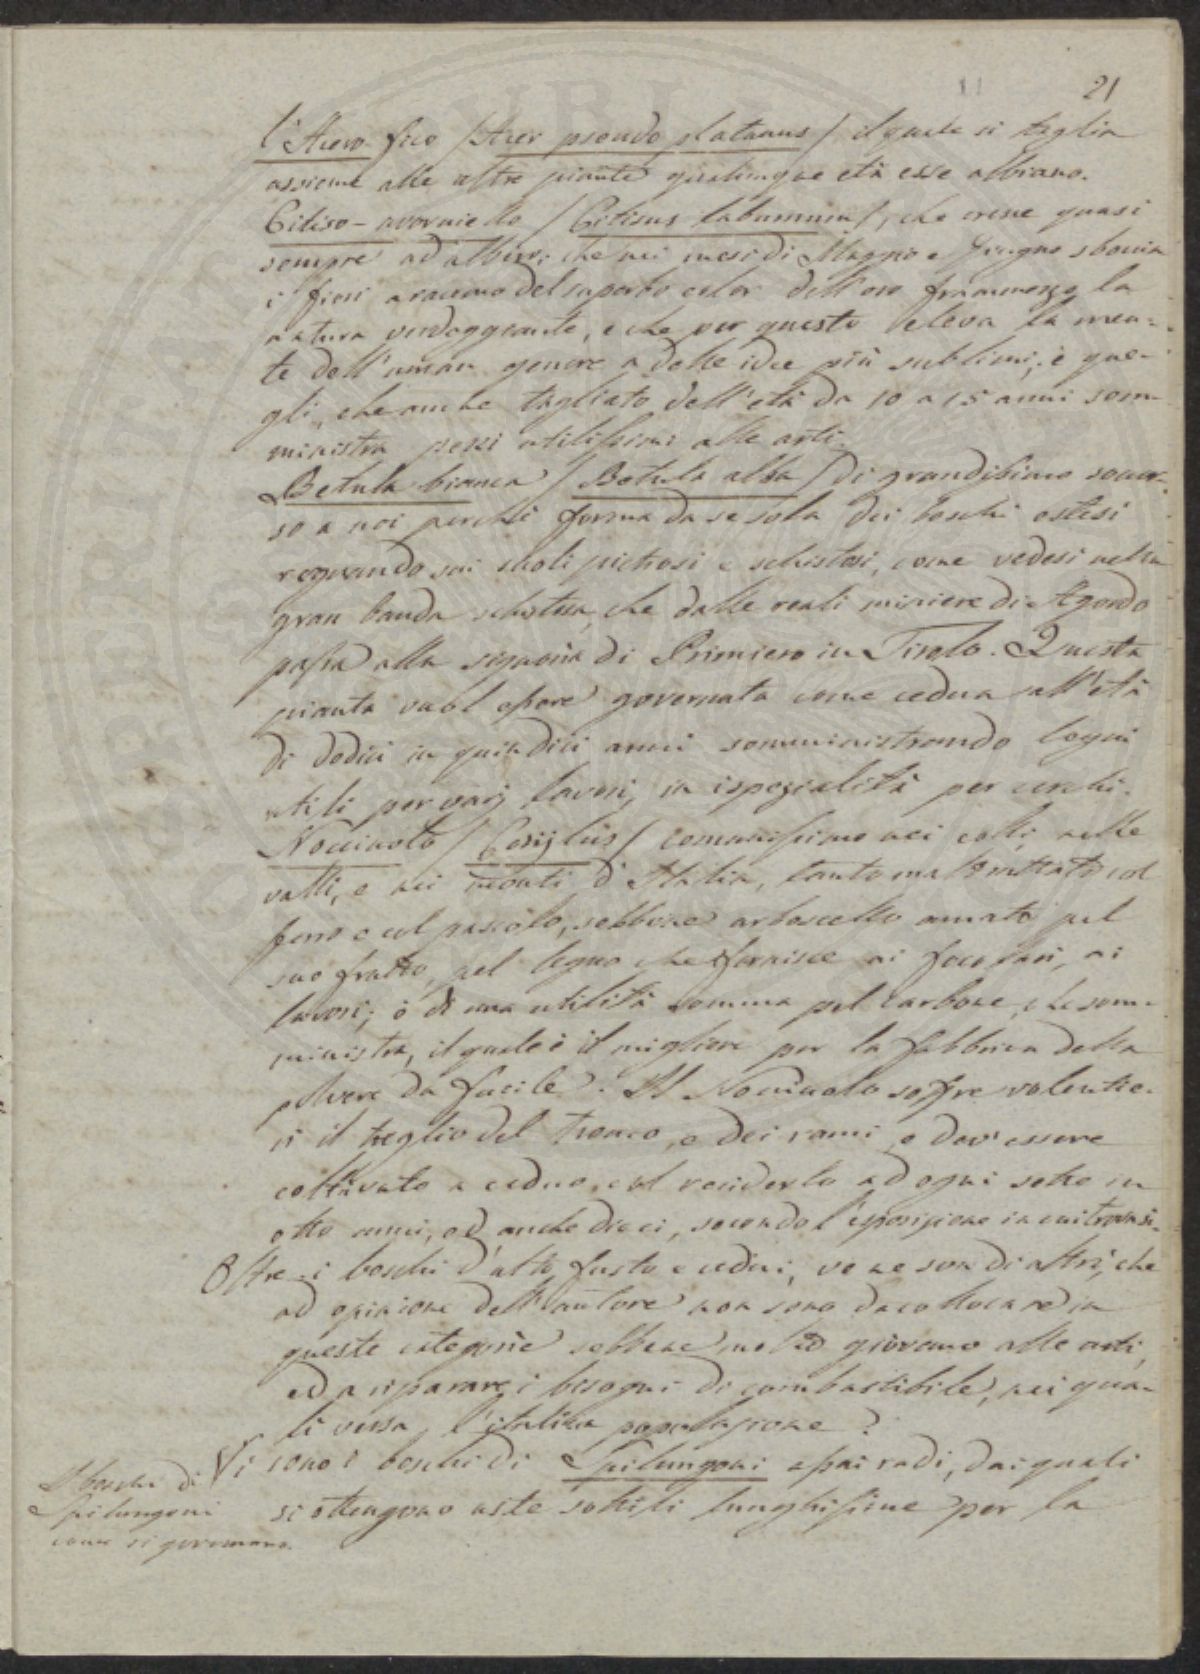 21
l'Acero fico / Acer pseudo platanus / il quale si taglia
assieme alle altre piante qualunque età esse abbiano.
Citiso-avorniello / Citisus labumnum /, che cresce quasi
sempre ad albero; che nei mesi di Maggio e Giugno sboccia
i fiori a racemo del superbo color dell'oro frammezzo la
natura verdeggiante, e che per questo eleva la men-
te dell'uman genere a delle idee più sublimi; è que-
gli, che anche tagliato dell'età da 10 a 15 anni som-
ministra pezzi utilissimi alle arti.
Betula bianca / Betula alba / di grandissimo soccor-
so a noi perchè forma da se sola dei boschi estesi
regnando sui suoli pietrosi e schistosi, come vedesi nella
gran banda schistosa, che dalle reali miniere di Agordo
passa alla signoria di Primiero in Tirolo. Questa
pianta vuol essere governata come cedua all'età
di dodici in quindici anni somministrando legni
utili per varj lavori, in ispezialità per cerchi.
Nocciuolo / Corijlus / comunissimo nei colli, nelle
valli, e nei monti d'Italia, tanto maltrattato col
ferro e col pascolo, sebbene arboscello amato pel
suo frutto, pel legno che fornisce ai focolari, ai
lavori; è di una utilità somma pel carbone, che som-
ministra, il quale è il migliore per la fabbrica della
polvere da fucile. Il Nocciuolo soffre volentie-
ri il taglio del tronco, e dei rami, e dev'essere
coltivato a ceduo, col reciderlo ad ogni sette in
otto anni, od anche dieci, secondo l'esposizione in cui trovasi.
Oltre i boschi d'alto fusto e cedui, ve ne son di altri, che
ad opinione dell'autore non sono da collocare in
queste categorie sebbene molto giovano alle arti,
ed a riparare i bisogni di combustibile, nei qua-
li versa l'italica popolazione?
Vi sono i boschi di Spilungoni assai radi, dai quali
si ottengono aste sottili lunghissime per la
I boschi di
Spilungoni
come si governano.